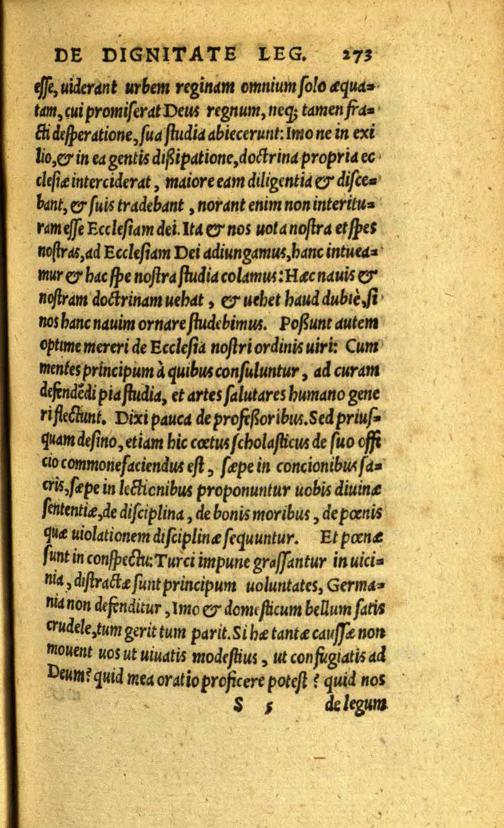 DE DIGNITATE LEG. 273
esse, uiderant urbem reginam omnium solo æqua-
tam, cui promiserat Deus regnum, neq; tamen fra-
cti desperatione, sua studia abiecerunt: Imo ne in exi
lio, & in ea gentis dißipatione, doctrina propria ec
clesiæ interciderat, maiore eam diligentia & disce-
bant, & suis tradebant, norant enim non interitu-
ram esse Ecclesiam dei. Ita & nos uota nostra et spes
nostras, ad Ecclesiam Dei adiungamus, hanc intuea-
mur & hac spe nostra studia colamus: Hæc nauis &
nostram doctrinam uehat, & uehet haud dubiè, si
nos hanc nauim ornare studebimus. Poßunt autem
optime mereri de Ecclesia nostri ordinis uiri: Cum
mentes principum à quibus consuluntur, ad curam
defendēdi pia studia, et artes salutares humano gene
ri flectunt. Dixi pauca de profeßoribus. Sed prius-
quam desino, etiam hic cœtus scholasticus de suo offi
cio commonefaciendus est, sæpe in concionibus sa-
cris, sæpe in lectionibus proponuntur uobis diuinæ
sententiæ, de disciplina, de bonis moribus, de pœnis
quæ uiolationem disciplinæ sequuntur. Et pœnæ
sunt in conspectu: Turci impune grassantur in uici-
nia, distractæ sunt principum uoluntates, Germa-
nia non defenditur, Imo & domesticum bellum satis
crudele, tum gerit tum parit. Si hæ tantæ caussæ non
mouent uos ut uiuatis modestius, ut confugiatis ad
Deum? quid mea oratio proficere potest? quid nos
S 5 de legum